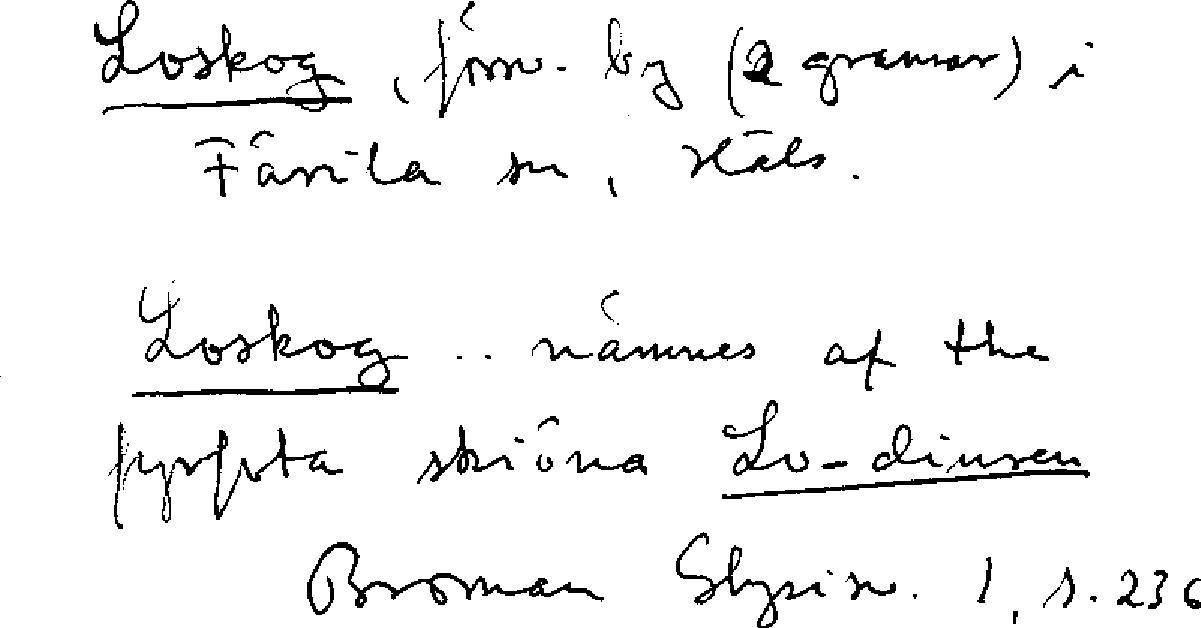 Loskog, förr. by (2 grannar) i
Färila sn, Häls.
Loskog .. nämnes af the
fyrfota skiöna Lo-diuren
Broman Glysisv. 1, s. 236